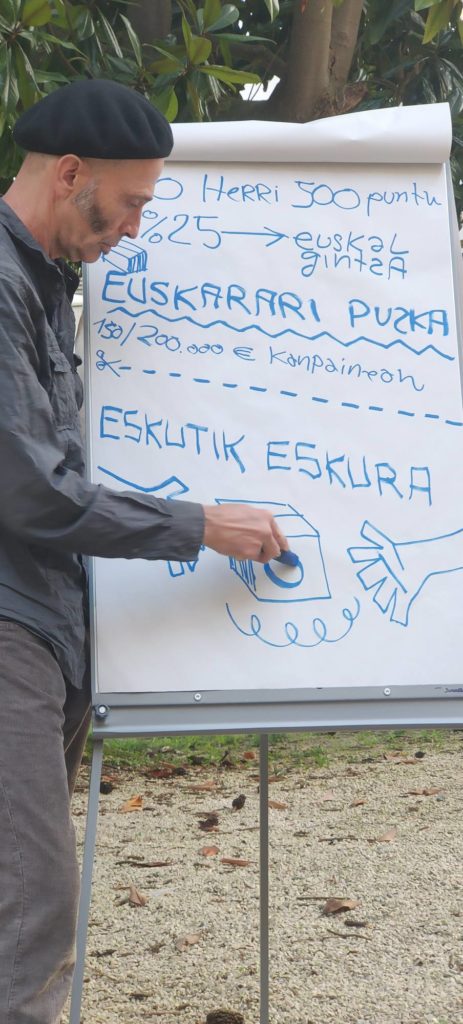 HERRI 500 puntu
%25 → euskal
gintza
EUSKARARI PUZKA
150/200.000 € Kanpainean
ESKUTIK ESKURA